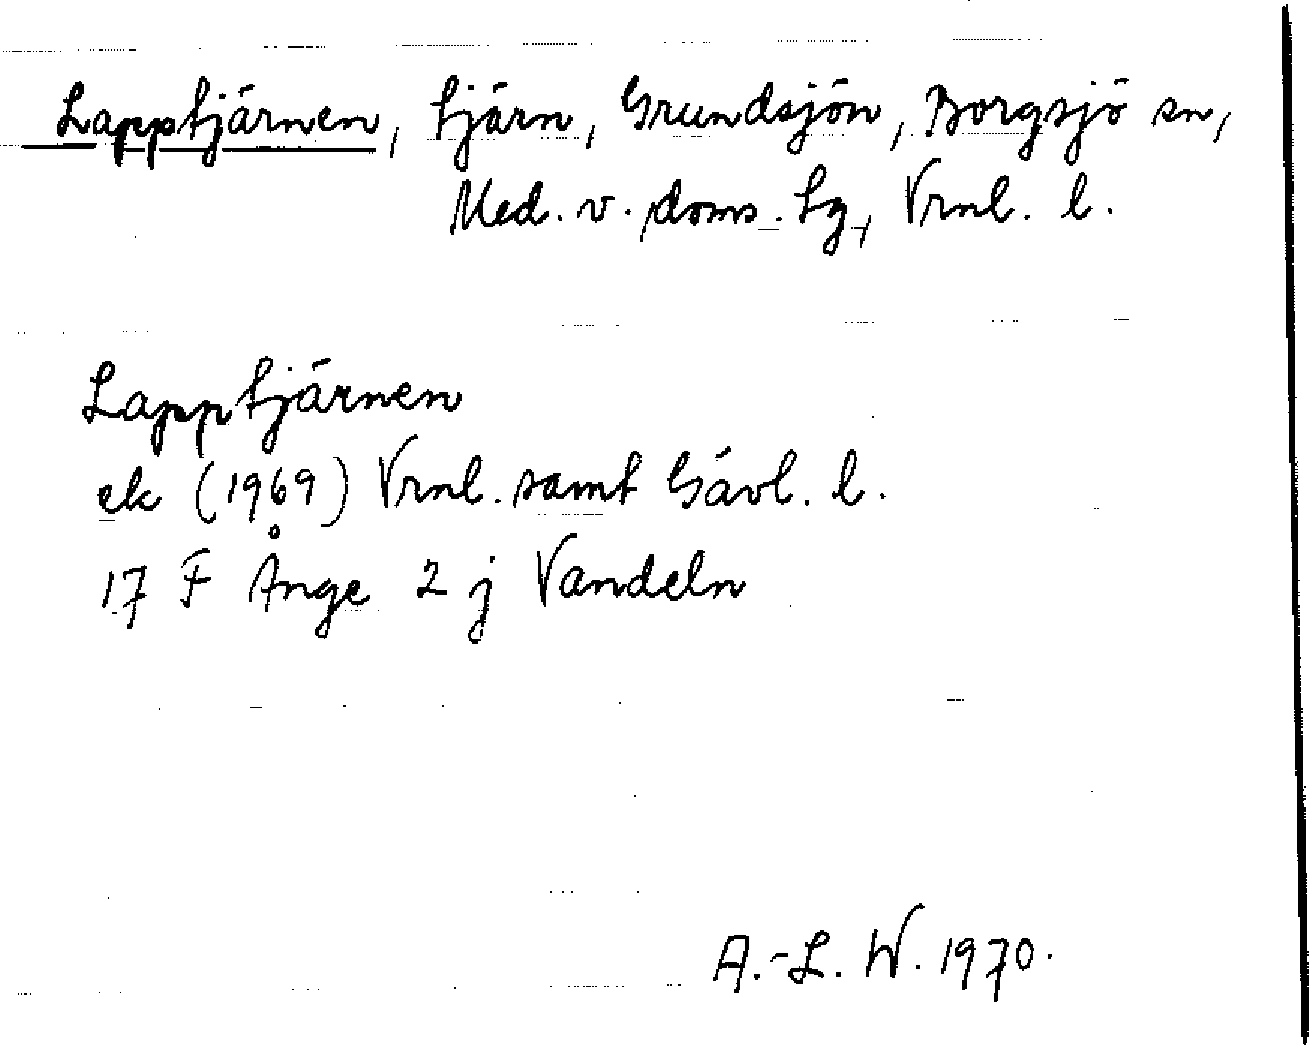 Lapptjärnen, tjärn, Grundsjön, Borgsjö sn,
Med. v. doms. tg, Vrnl. l.
Lapptjärnen
ek (1969) Vrnl. samt Gävl. l.
17 F Ånge 2 j Vandeln
A.-L. W. 1970.